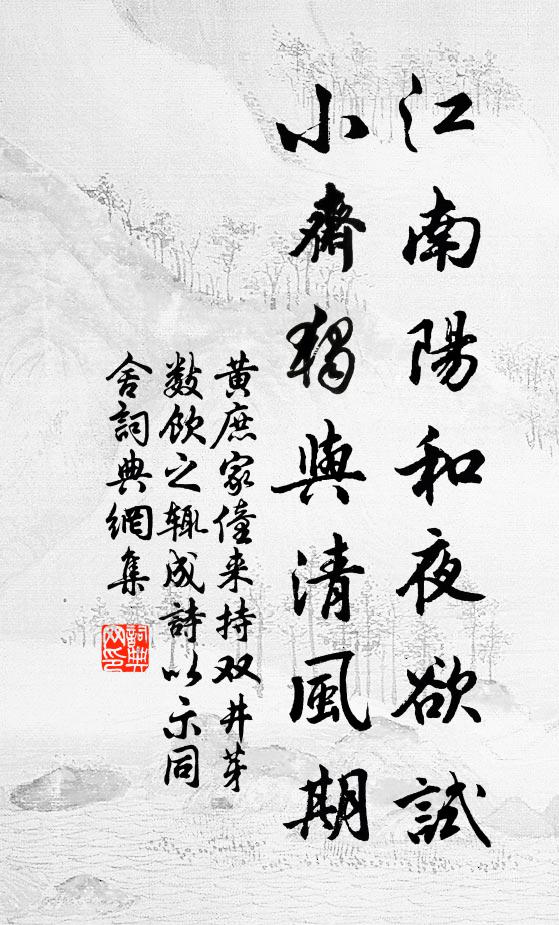 江南陽和夜欲試
小齋獨與清風期
黄庶家僮来持双井芽
数飲之辄成詩以示同
舍詞典網集
詞典
网印